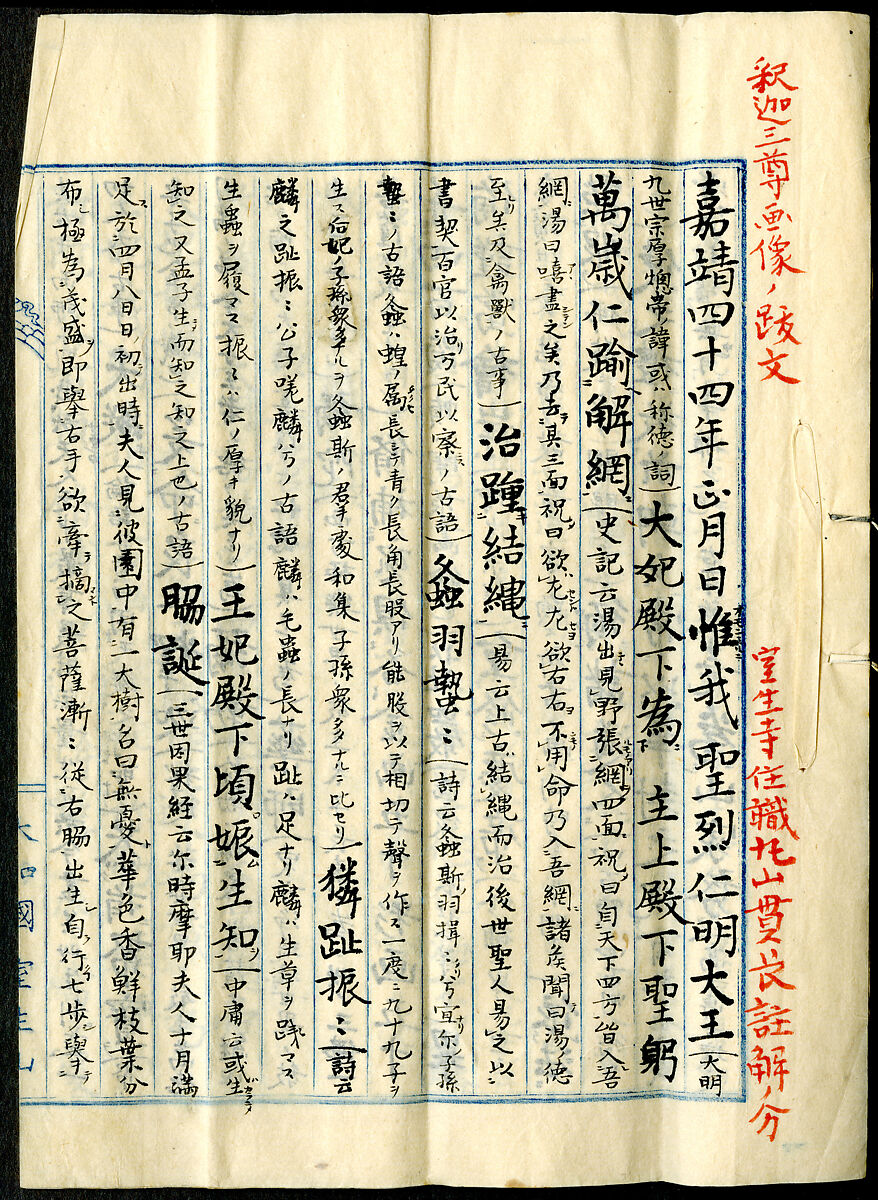 釈迦三尊画像ノ跋文　室生寺住職丸山貫長註解ノ分
嘉靖四十四年正月日惟我　聖烈仁明大王（大明
九世宗厚熜帝ノ諱或ハ称徳ノ詞）大妃殿下為　主上殿下聖躬
萬歳仁踰解網（史記云湯出見野張網四面祝曰自天下四方皆入吾
網湯曰嘻盡之矣乃去其三面祝曰欲左左欲右右不用命乃入吾網諸侯聞曰湯ノ徳
至矣及禽獣ノ古事）治踵結縄（易云上古結縄而治後世聖人易之以
書契百官以治万民以察ノ古語）螽羽蟄ミ（詩云螽斯羽揖ミ兮宜尓子孫
蟄ミノ古語螽ハ蝗ノ属長シテ青ク長角長股アリ能股ヲ以テ相切テ聲ヲ作ス一度ニ九十九子ヲ
生ス后妃ノ子孫衆多ナルヲ螽斯ノ群處和集子孫衆多ナルニ比セリ）獜趾振ミ（詩云
麟之趾振ミ公子嗟麟兮ノ古語麟ハ毛蟲ノ長ナリ趾ハ足ナリ麟ハ生草ヲ践マス
生蟲ヲ履マス振ミハ仁ノ厚キ貌ナリ）王妃殿下頃娠生知（中庸云或生
知之又孟子生而知之知之上也ノ古語）脇誕（三世因果経云尓時摩耶夫人十月満
足於四月八日日初出時夫人見彼園中有一大樹名曰無憂華色香鮮枝葉分
布極為茂盛即擧右手欲牽摘之菩薩漸ミ従右脇出生自行七歩擧
大和國室生山